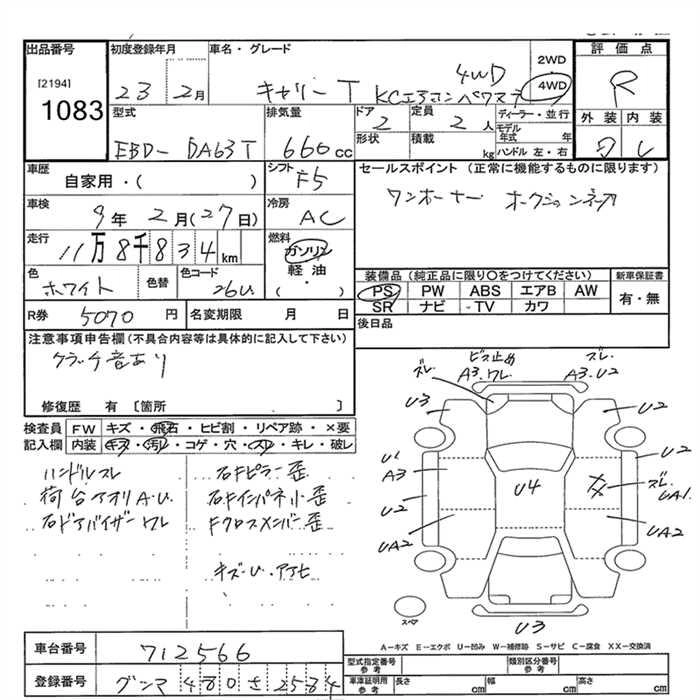 出品番号
[2194]
1083
初度登録年月
23 2月
車名・グレード
キャリーT KCエアコンパワステ
4WD
2WD
4WD
評価点
R
外装 内装
型式
EBD-DA63T
排気量
660cc
ドア
2
形状
定員
2人
積載
kg
ディーラー・並行
モデル年式 年
ハンドル 左・右
車歴
自家用・( )
シフト
F5
セールスポイント (正常に機能するものに限ります)
ワンオーナー オークションネップ
車検
9年 2月(27日)
冷房
AC
走行
11万8千834km
燃料
ガソリン
軽油
( ・ )
色
ホワイト
色替
色コード
26U
装備品(純正品に限り○をつけてください)
PS PW ABS エアB AW
SR ナビ TV カワ
新車保証書
有・無
R券 5070円
名変期限 月 日
後日品
注意事項申告欄(不具合内容等は具体的に記入して下さい)
クラッチ音あり
修復歴 有 [箇所 ]
検査員記入欄
FW キズ・飛石・ヒビ割・リペア跡・×要
内装 キズ・汚レ・コゲ・穴・スレ・キレ・破レ
ハンドルスレ
荷台アオリA.U.
右ドアバイザーワレ
右Fピラー歪
右Fインパネ小歪
Fクロスメンバー歪
キズ・U・アアヒ
ビス止め
ズレ
A3.ワレ
ズレ
A3.U2
U3
U2
U1
A3
U2
U4
U2
ズレ
UA1.
UA2
UA2
U3
スペア
A-キズ E-エクボ U-凹み W-補修跡 S-サビ C-腐食 XX-交換済
車台番号
712566
登録番号
グンマ 480 さ 2584
型式指定番号
参考
類別区分番号
参考
車庫証明用
参考
長さ cm
幅 cm
高さ cm